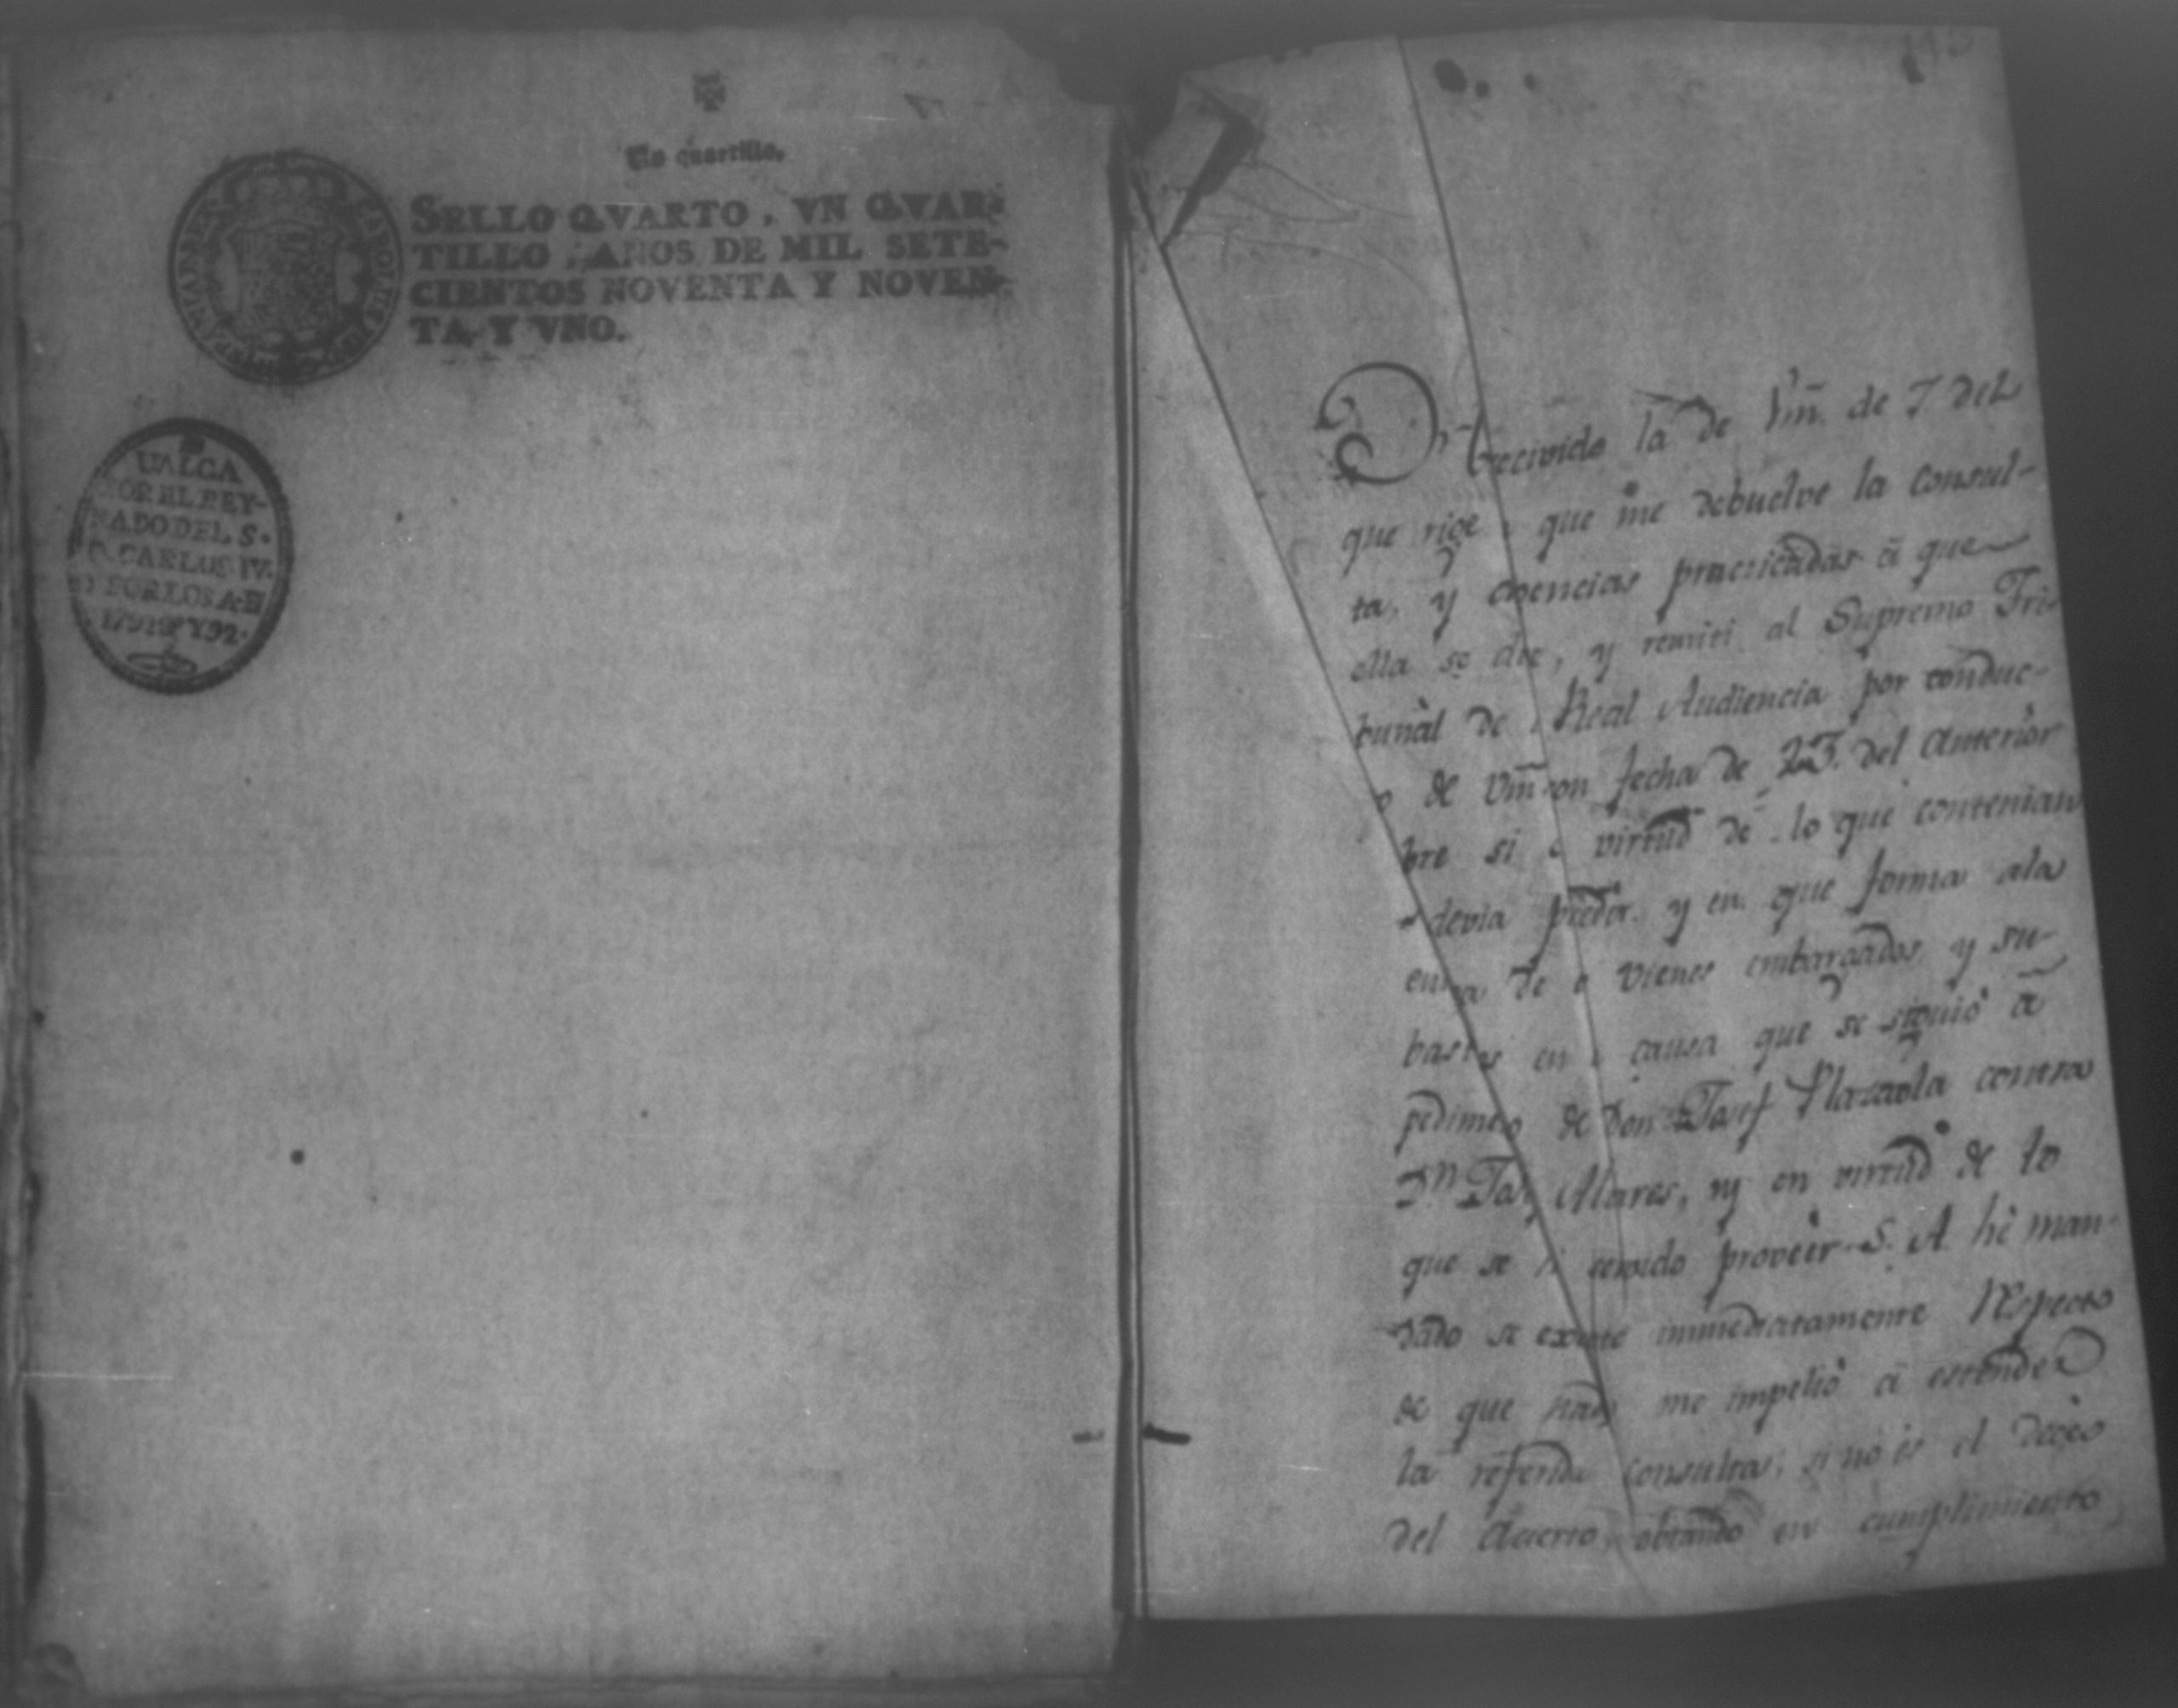 Un quartillo.
SELLO QVARTO, VN QVAR-
TILLO, AÑOS DE MIL SETE-
CIENTOS NOVENTA Y NOVEN-
TA Y VNO.
VALGA
POR EL REY-
NADO DEL S.
D. CARLOS IV.
Y POR LOS A.
1791 Y 92.
recivido la de Vm̃. de 7 del
que rige, que me debuelve la consul-
ta, y practicadas â que
ella se , y remití al Supremo Tri-
bunàl de Real Audiencia por conduc-
o de Vm̃ con fecha de 23. del anterior
bre si virtud de lo que contenian
devia y en que forma ala
de vienes embargados, y su-
bastas en causa que se siguiò â
pedimeto de Don Josef contra
Dn. Jos , y en virtud de lo
que se servido proveèr S. A. hè man-
dado se inmediatamente Respecto
de que me impeliò â estender
la referida consulta, si no és el deseo
del Acierto, obtando en cumplimiento